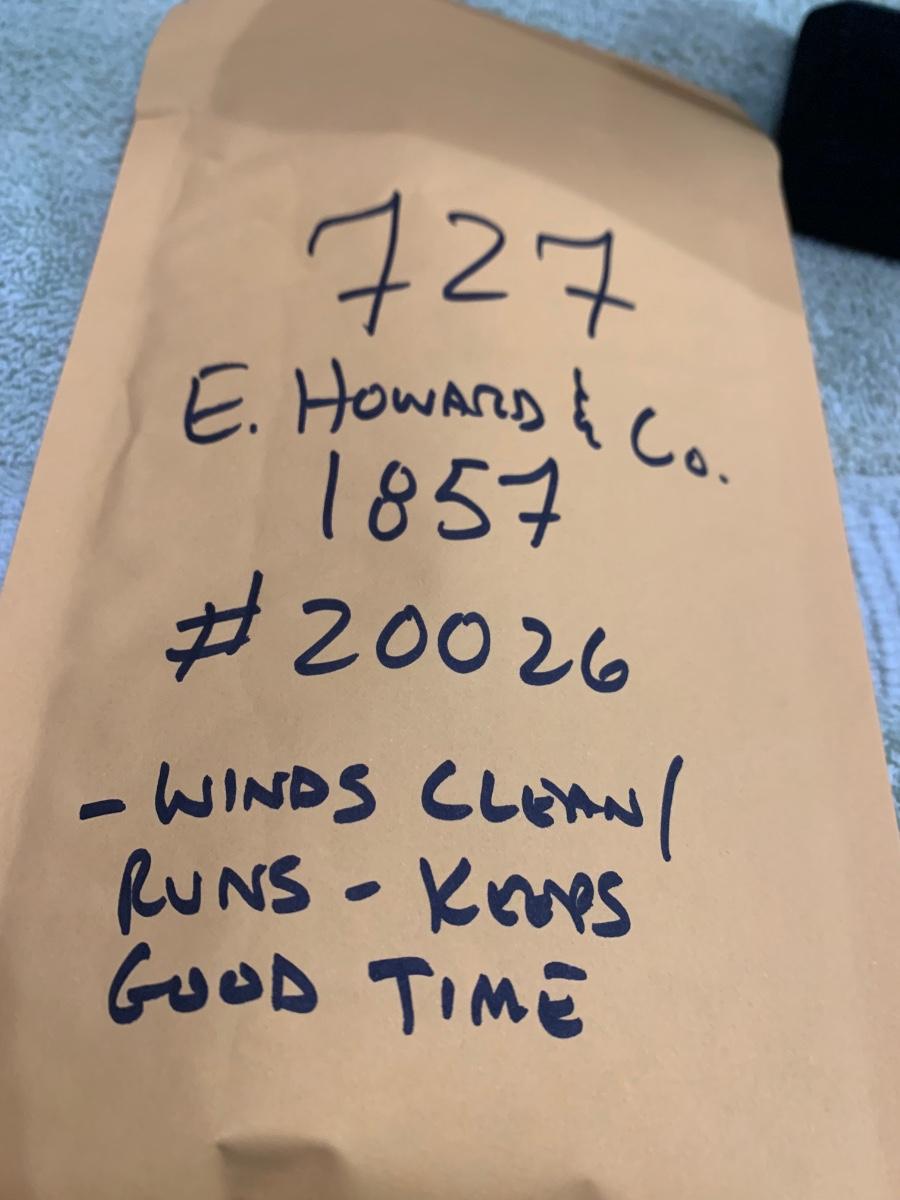 727
E. HOWARD & Co.
1857
#20026
- WINDS CLEAN/
RUNS - KEEPS
GOOD TIME